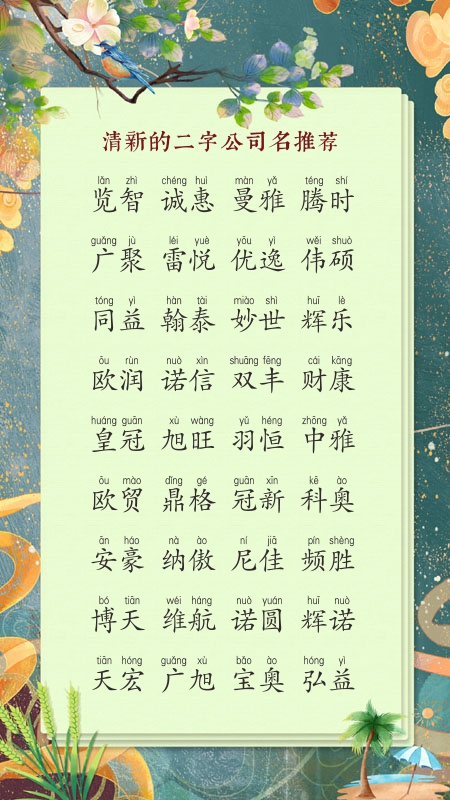 清新的二字公司名推荐
lǎn zhì chéng huì màn yǎ téng shí
览智 诚惠 曼雅 腾时
guǎng jù léi yuè yōu yì wěi shuò
广聚 雷悦 优逸 伟硕
tóng yì hàn tài miào shì huī lè
同益 翰泰 妙世 辉乐
ōu rùn nuò xìn shuāng fēng cái kāng
欧润 诺信 双丰 财康
huáng guān xù wàng yǔ héng zhōng yǎ
皇冠 旭旺 羽恒 中雅
ōu mào dǐng gé guān xīn kē ào
欧贸 鼎格 冠新 科奥
ān háo nà ào ní jiā pín shèng
安豪 纳傲 尼佳 频胜
bó tiān wéi háng nuò yuán huī nuò
博天 维航 诺圆 辉诺
tiān hóng guǎng xù bǎo ào hóng yì
天宏 广旭 宝奥 弘益